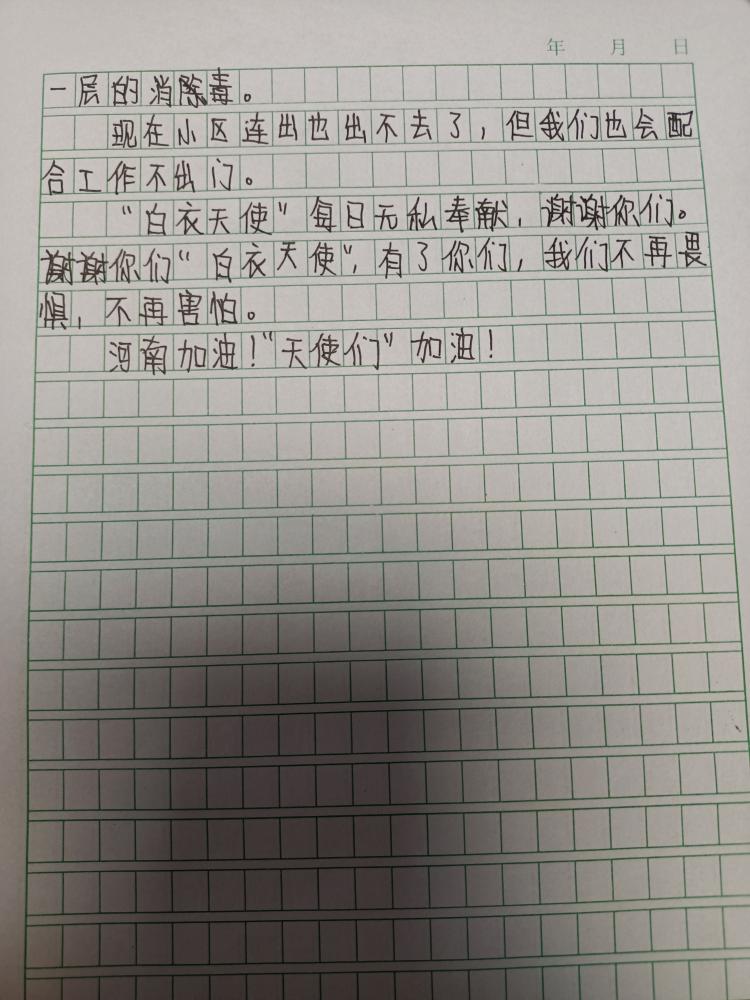 年 月 日
一层的消除毒。
现在小区连出也出不去了，但我们也会配
合工作不出门。
“白衣天使”每日无私奉献，谢谢你们。
谢谢你们“白衣天使”，有了你们，我们不再畏
惧，不再害怕。
河南加油！“天使们”加油！